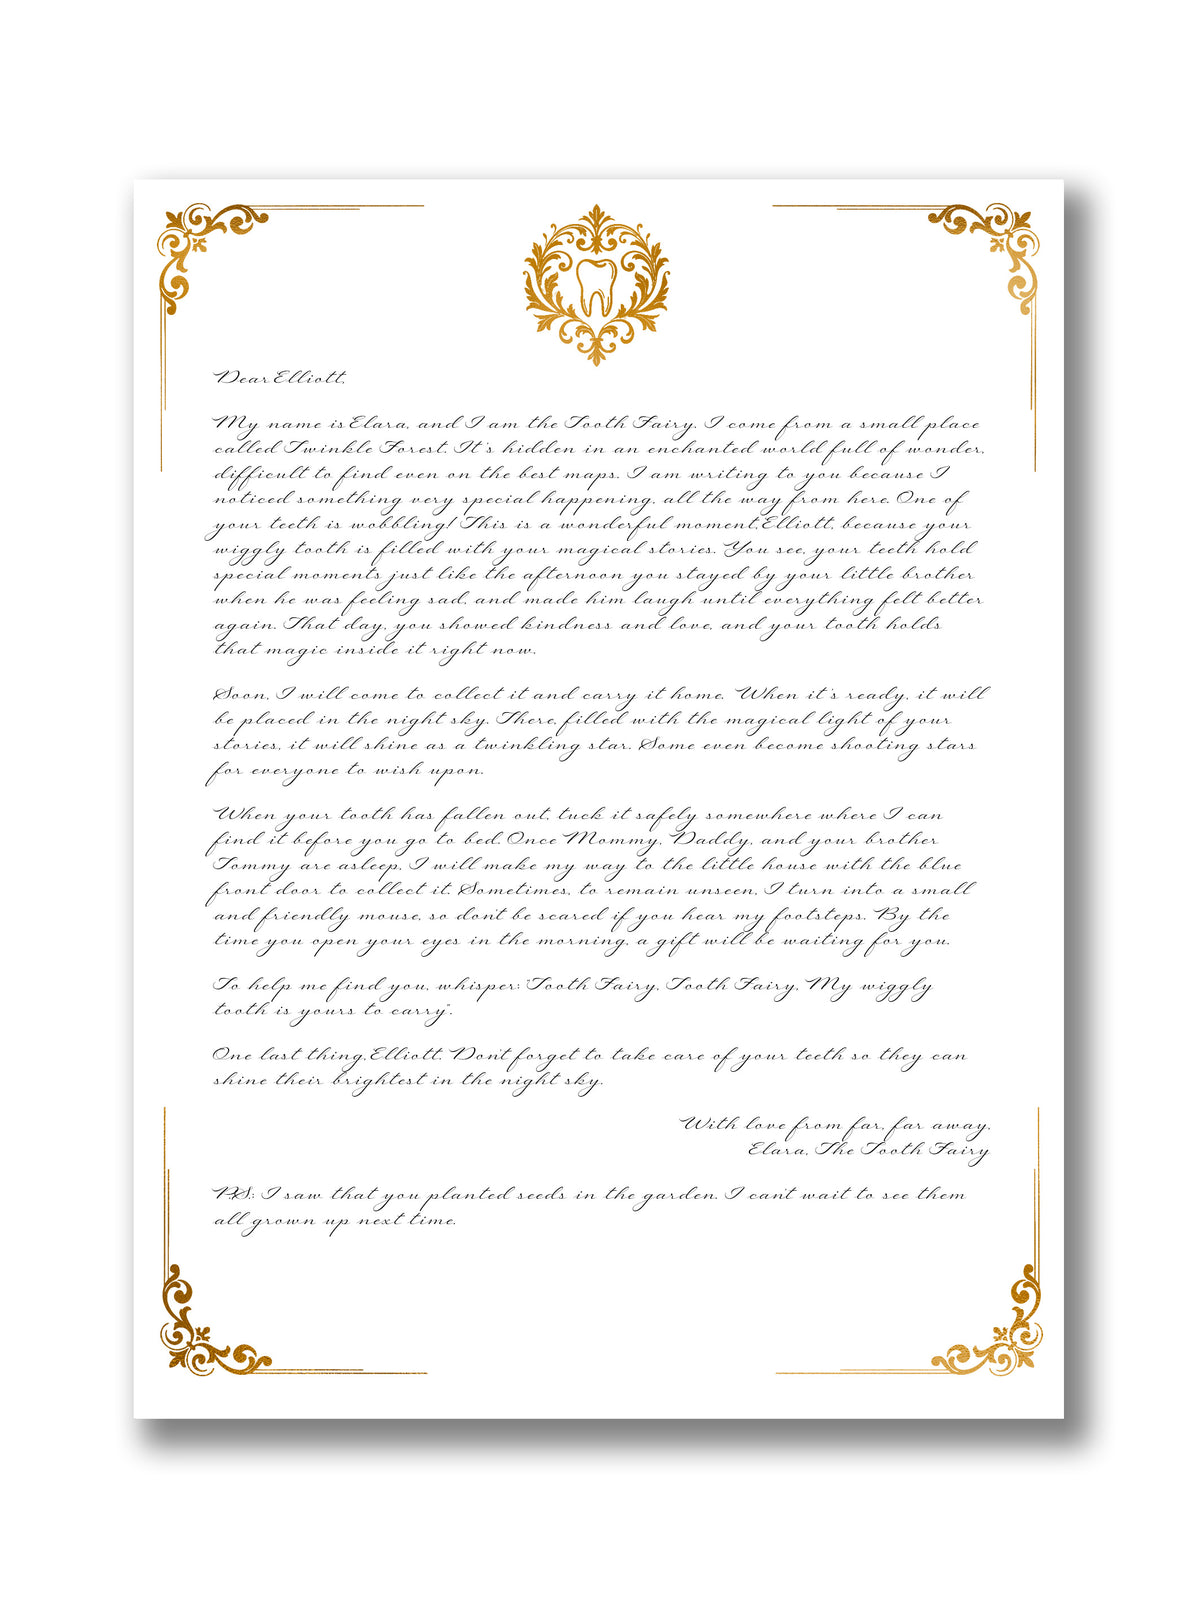 Dear Elliott,
My name is Elara, and I am the Tooth Fairy. I come from a small place
called Twinkle Forest. It's hidden in an enchanted world full of wonder,
difficult to find even on the best maps. I am writing to you because I
noticed something very special happening, all the way from here. One of
your teeth is wobbling! This is a wonderful moment, Elliott, because your
wiggly tooth is filled with your magical stories. You see, your teeth hold
special moments just like the afternoon you stayed by your little brother
when he was feeling sad, and made him laugh until everything felt better
again. That day, you showed kindness and love, and your tooth holds
that magic inside it right now.
Soon, I will come to collect it and carry it home. When it's ready, it will
be placed in the night sky. There, filled with the magical light of your
stories, it will shine as a twinkling star. Some even become shooting stars
for everyone to wish upon.
When your tooth has fallen out, tuck it safely somewhere where I can
find it before you go to bed. Once Mommy, Daddy, and your brother
Tommy are asleep, I will make my way to the little house with the blue
front door to collect it. Sometimes, to remain unseen, I turn into a small
and friendly mouse, so don't be scared if you hear my footsteps. By the
time you open your eyes in the morning, a gift will be waiting for you.
To help me find you, whisper: "Tooth Fairy, Tooth Fairy, My wiggly
tooth is yours to carry".
One last thing, Elliott. Don't forget to take care of your teeth so they can
shine their brightest in the night sky.
With love from far, far away,
Elara, The Tooth Fairy
P.S.: I saw that you planted seeds in the garden. I can't wait to see them
all grown up next time.